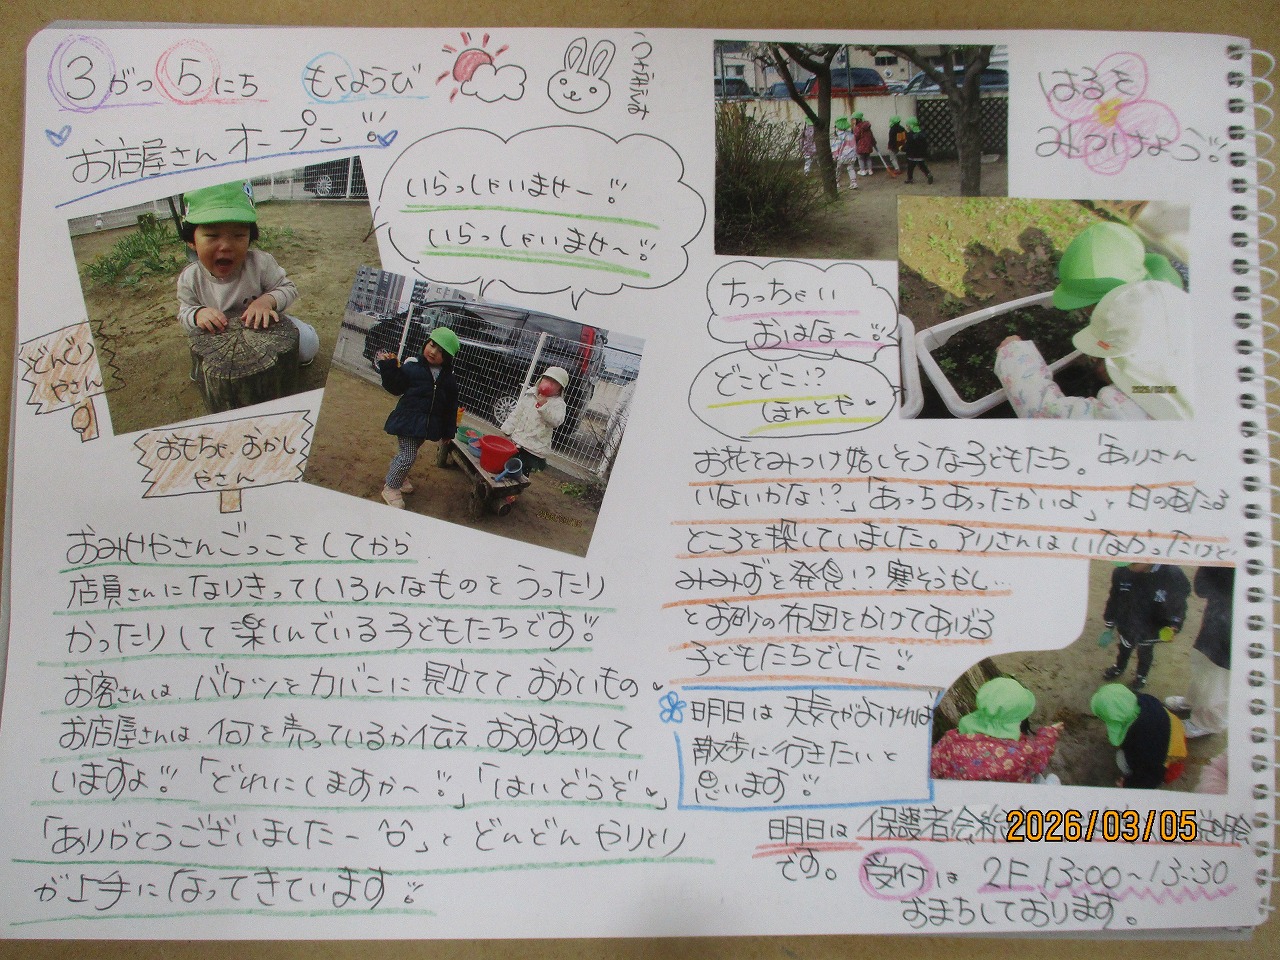 3がつ5にち もくようび
お店屋さん オープン!!
いらっしゃいませ〜!!
いらっしゃいませ〜!!
どんぐり
やさん
おもちゃ、おかし
やさん
おみせやさんごっこをしてから
店員さんになりきっていろんなものをうったり
かったりして楽しんでいる子どもたちです!!
お客さんは、バケツをカバンに見立てて、おかいもの
お店屋さんは、何を売っているか伝え、おすすめして
いますよ!!「どれにしますか〜!!」「はいどうぞ」
「ありがとうございましたー」とどんどん やりとり
が上手になってきています!!
はるを
みつけよう!!
ちっちゃい
おはな〜!!
どこどこ!?
ほんとや
お花をみつけ始めそうな子どもたち。「ありさん
いないかな!?」「あっちあったかいよ」と日のあたる
ところを探していました。アリさんはいなかったけど、
みみずを発見!?寒そうやし…
とお砂の布団をかけてあげる
子どもたちでした!!
明日は天気がよければ
散歩に行きたいと
思います!!
明日は 保護者会
です。受付は 2F 13:00〜13:30
おまちしております。
2026/03/05
2026/03/05